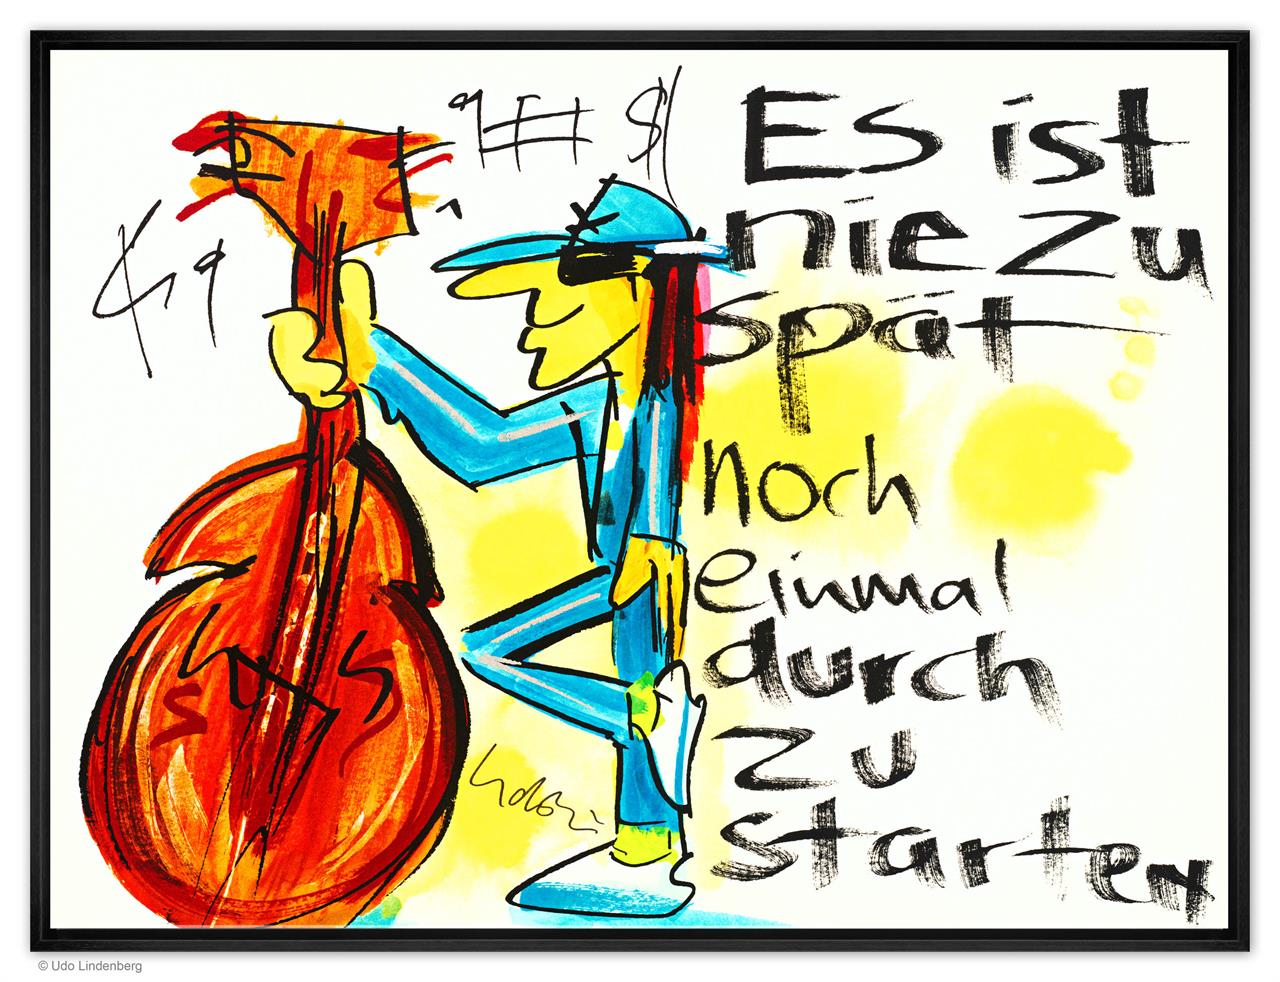 Es ist
nie zu
spät
noch
einmal
durch
zu
starten
© Udo Lindenberg